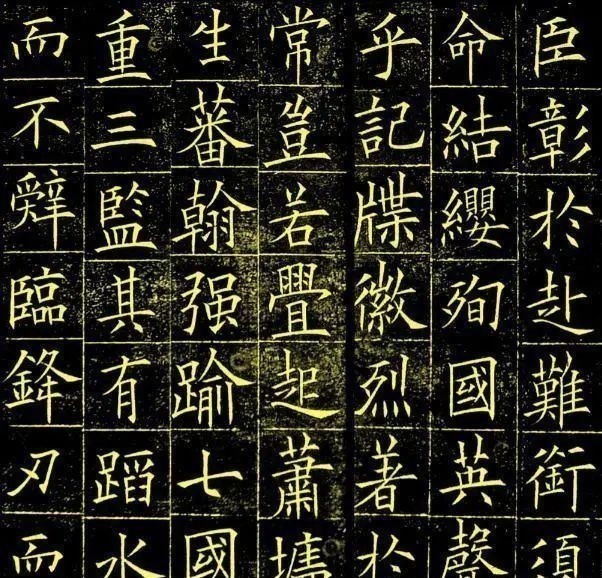 臣彰於赴難銜須
命結纓殉國英聲
乎記牒徽烈著於
常豈若疊起蕭墻
生蕃翰强踰七國
重三監其有蹈水
而不辤臨鋒刃而